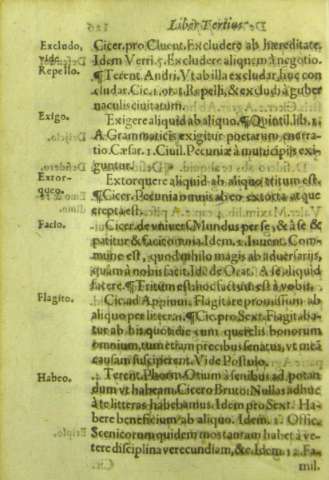 Liber Tertius.
Excludo, Cicer. pro Cluent. Excludere ab hæreditate.
vide Idem Verri. 5. Excludere aliquem à negotio.
Repello. ¶ Terent. Andri. Vt ab illa excludar, huc con
cludar. Cic. 1. orat. Repelli, & excludi à guber
naculis ciuitatum.
Exigo. Exigere aliquid ab aliquo. ¶ Quintil. lib. 1.
A Grammaticis exigitur poetarum enarra-
tio. Cæsar. 1. Ciuil. Pecuniæ à municipijs exi-
guntur.
Extor- Extorquere aliquid ab aliquo tritum est.
queo. ¶ Cicer. Pecunia omnis ab eo extorta atque
erepta est.
Facio. Cicer. de vniuers. Mundus per se, & à se &
patitur & facit omnia. Idem. 1. Inuent. Com-
mune est, quod nihilo magis ab aduersarijs,
quàm à nobis facit. Idē de Orat. A se aliquid
facere. ¶ Tritum est hoc factum est à vobis.
Flagito. Cic. ad Appium. Flagitare promissum ab
aliquo per litteras. ¶ Cic. pro Sext. Flagitaba-
tur ab his quotidie cum querelis bonorum
omnium, tum etiam precibus senatus, vt meā
causam susciperent. Vide Postulo.
Habeo. Terent. Phorm. Otium à senibus ad potan
dum vt habeam. Cicero Bruto: Nullas adhuc
à te litteras habebamus. Idem pro Sext. Ha-
bere beneficium ab aliquo. Idem. 1. Offic.
Scenicorum quidem mos tantam habet à ve-
tere disciplina verecundiam, & Idem. 12. Fa-
mil.